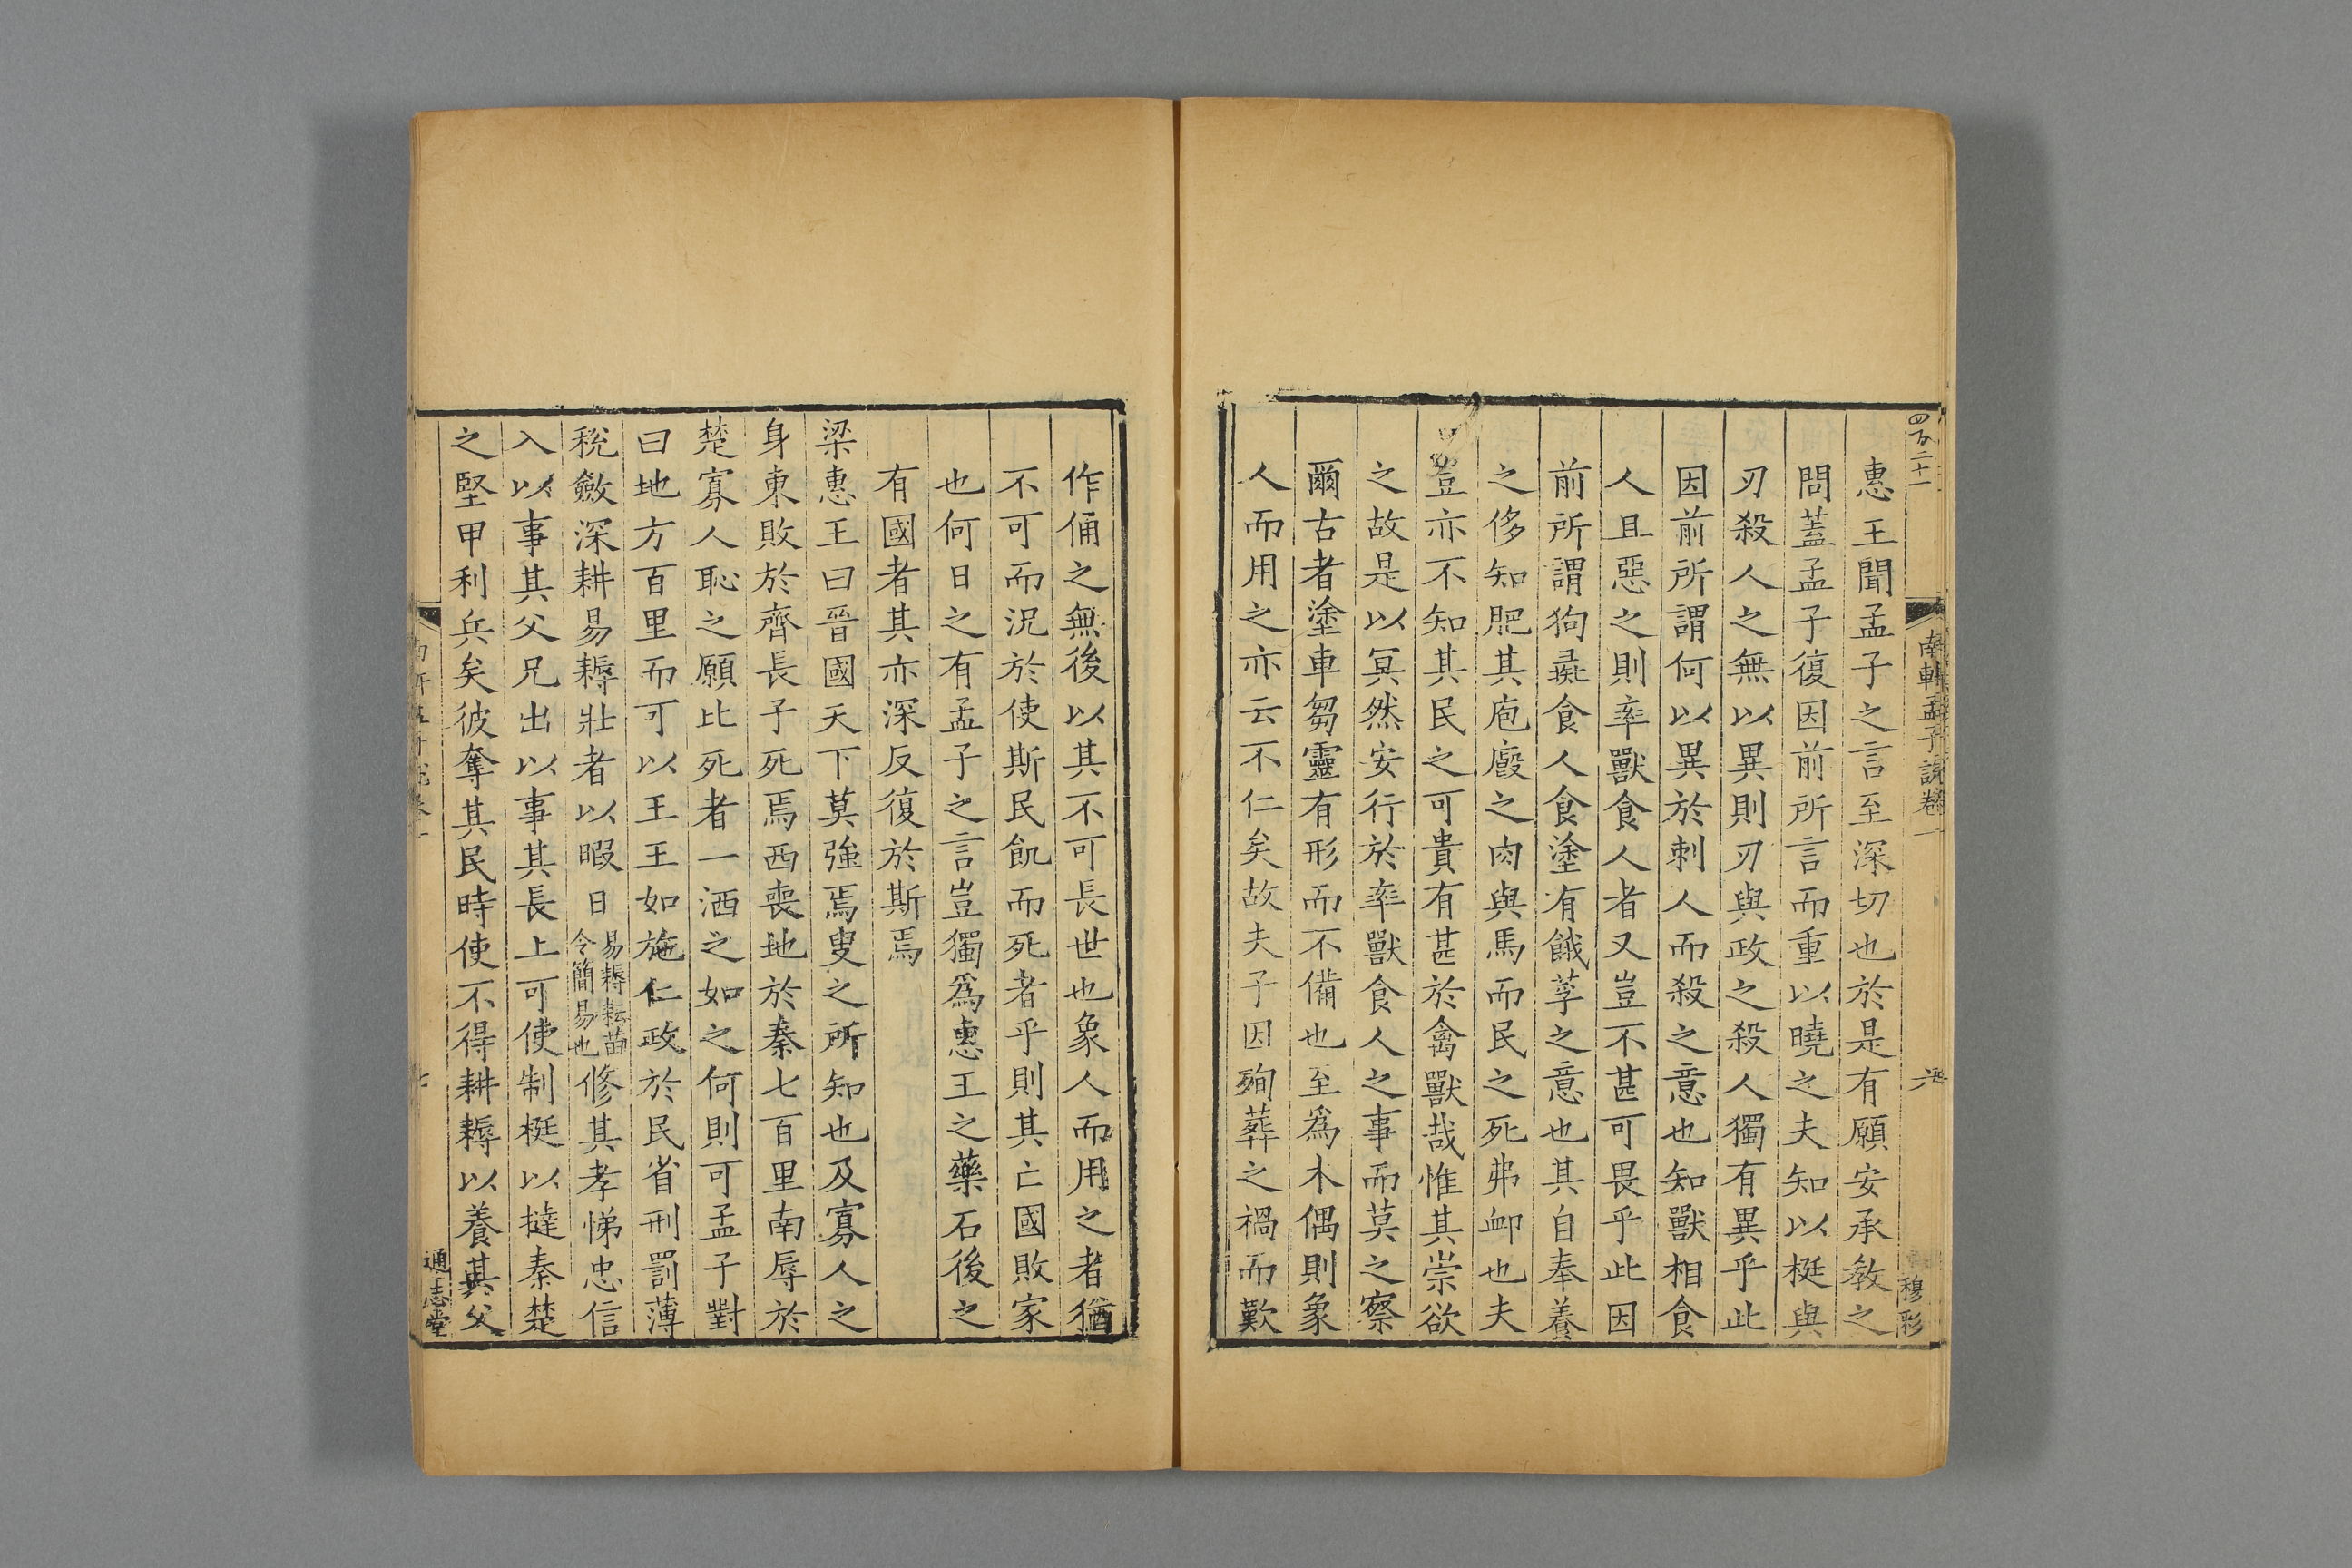 四百二十一
南軒孟子說卷一
六
穆彤
惠王聞孟子之言至深切也於是有願安承敎之
問蓋孟子復因前所言而重以曉之夫知以梃與
刃殺人之無以異則刃與政之殺人獨有異乎此
因前所謂何以異於刺人而殺之意也知獸相食
人且惡之則率獸食人者又豈不甚可畏乎此因
前所謂狗彘食人食塗有餓莩之意也其自奉養
之侈知肥其庖廏之肉與馬而民之死弗卹也夫
豈亦不知其民之可貴有甚於禽獸哉惟其崇欲
之故是以冥然安行於率獸食人之事而莫之察
爾古者塗車芻靈有形而不備也至爲木偶則象
人而用之亦云不仁矣故夫子因殉葬之禍而歎
作俑之無後以其不可長世也象人而用之者猶
不可而況於使斯民飢而死者乎則其亡國敗家
也何日之有孟子之言豈獨爲惠王之藥石後之
有國者其亦深反復於斯焉
梁惠王曰晉國天下莫強焉叟之所知也及寡人之
身東敗於齊長子死焉西喪地於秦七百里南辱於
楚寡人恥之願比死者一洒之如之何則可孟子對
曰地方百里而可以王王如施仁政於民省刑罰薄
稅斂深耕易耨壯者以暇日易耨耘苗令簡易也修其孝悌忠信
入以事其父兄出以事其長上可使制梃以撻秦楚
之堅甲利兵矣彼奪其民時使不得耕耨以養其父
通志堂